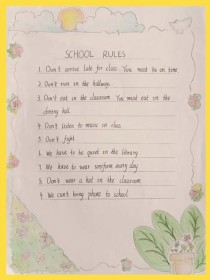 SCHOOL RULES
1. Don't arrive late for class. You must be on time
2. Don't run in the hallways
3. Don't eat in the classroom. You must eat in the
dining hall.
4. Don't listen to music in class
5. Don't fight.
6. We have to be quiet in the library
7. We have to wear uniform every day
8. Don't wear a hat in the classroom
9. We can't bring phone to school